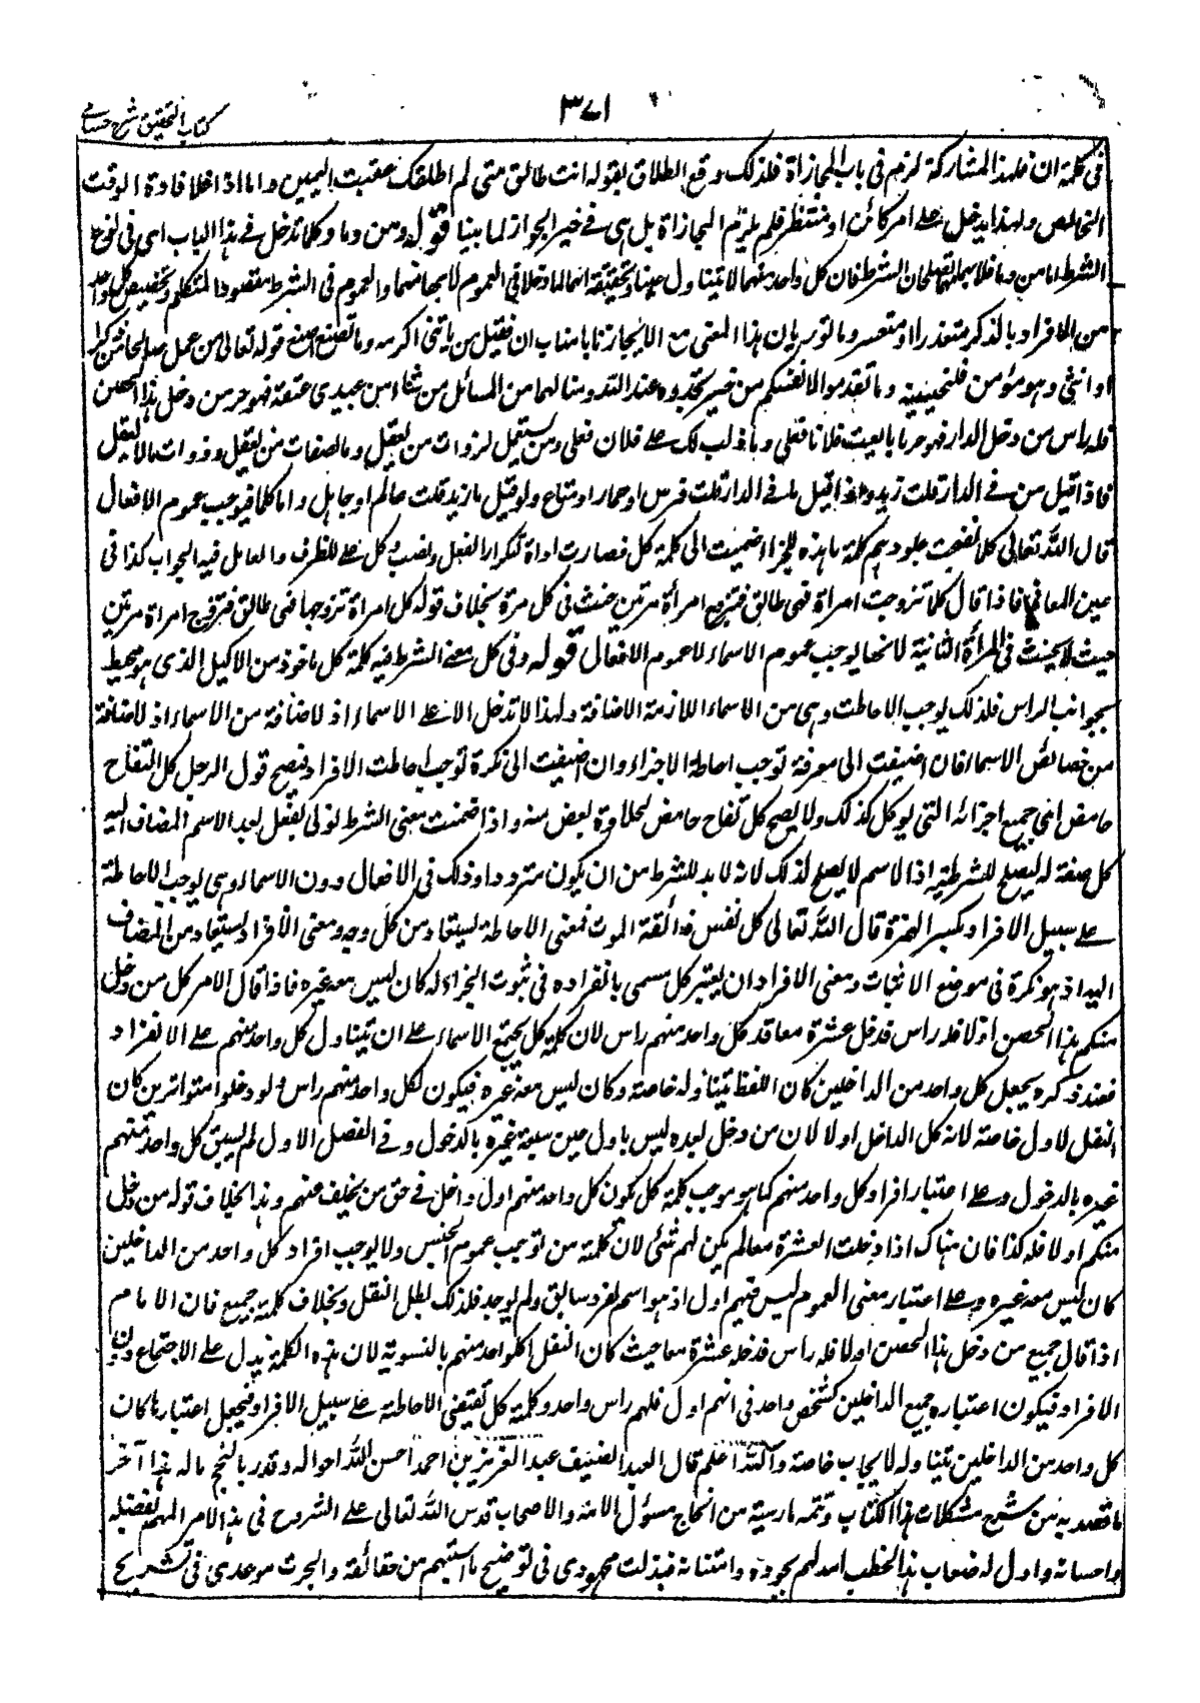 ٣٧١
كتاب التحقيق شرح حسامي
فى كلمة ان فلهذا المشاركة لزم فى باب المجازاة فلذلك وقع الطلاق بقوله انت طالق متى لم اطلقك عقيب اليمين واما اذا فلا فادة الوقت
الخالص ولهذا يدخل على امر كائن او منتظر فلم يلزم المجازاة بل هى فى حيز الجواز لما بينا قوله ومن وما وكلما تدخل فى هذا الباب اى فى نوع
الشرط اما من وما فلابهامهما يصلحان للشرط فان كل واحد منهما لا يتناول عينا وتحقيقه انهما لما دخلا فى العموم لابهامهما والعموم فى الشرط مقصود المتكلم وتخصيص كل واحد
من الافراد بالذكر متعذر او متعسر وما توديان هذا المعنى مع الايجاز نابا مناب ان فقيل من ياتنى اكرمه وما تصنع اصنع قوله تعالى من عمل صالحا من ذكر
او انثى وهو مؤمن فلنحيينه وما تقدموا لانفسكم من خير تجدوه عند الله ومثالهما من المسائل من شاء من عبيدى عتقه فهو حر من دخل هذا الحصن
فله راس من دخل الدار فهو حر ما بايعت فلانا فعلى وما ذاب لك على فلان فعلى ومن يستعمل لذوات من يعقل وما لصفات من يعقل وذوات ما لا يعقل
فاذا قيل من فى الدار قلت زيد واذا قيل ما فى الدار قلت فرس او حمار او متاع ولو قيل ما زيد قلت عالم او جاهل واما كلما فيوجب عموم الافعال
قال الله تعالى كلما نضجت جلودهم كلمة ما هذه للجزاء ضمت الى كلمة كل فصارت اداة لتكرار الفعل ونصب كل على الظرف والعامل فيه الجواب كذا فى
عين المعانى فاذا قال كلما تزوجت امراة فهى طالق فتزوج امرأة مرتين حنث فى كل مرة بخلاف قوله كل امراة تزوجها فهى طالق فتزوج امراة مرتين
حيث لا يحنث فى المرأة الثانية لانها يوجب عموم الاسماء لا عموم الافعال قوله وفى كل معنى الشرط فيه كلمة كل ماخوذ من الاكليل الذى هو محيط
بجوانب الراس فلذلك يوجب الاحاطت وهى من الاسماء اللازمة الاضافة ولهذا لا تدخل الا على الاسماء اذ الاضافة من الاسماء اذ الاضافة
من خصائص الاسماء فان اضيفت الى معرفة توجب احاطة الاجزاء وان اضيفت الى نكرة توجب احاطت الافراد فيصح قول الرجل كل التفاح
حامض اى جميع اجزائه التى يوكل كذلك ولا يصح كل تفاح حامض لحلاوة بعض منه واذا تضمنت معنى الشرط تولى بفعل بعد الاسم المضاف اليه
كل صفة له ليصلح للشرطية اذ الاسم لا يصلح لذلك لانه لابد للشرط من ان يكون مترددا وذلك فى الافعال دون الاسماء وهى يوجب الاحاطة
على سبيل الافراد بكسر الهمزة قال الله تعالى كل نفس ذائقة الموت فمعنى الاحاطة ليستفاد من كل وجه ومعنى الافراد يستفاد من المضاف
اليه اذ هو نكرة فى موضع الاثبات ومعنى الافراد ان يعتبر كل مسمى بانفراده فى ثبوت الجزاء له كان ليس معه غيره فاذا قال الامر كل من دخل
منكم هذا الحصن اولا فله راس فدخل عشرة معا فلكل واحد منهم راس لان كلمة كل تجمع الاسماء على ان يتناول كل واحد منهم على الانفراد
فعند ذكره يجعل كل واحد من الداخلين كان اللفظ يتناوله خاصة وكان ليس معه غيره فيكون لكل واحد منهم راس ولو دخلوا متواترين كان
النفل للاول خاصة لانه كل الداخل اولا لان من دخل بعده ليس باول حين سبقه غيره بالدخول وفى الفصل الاول لم يسبق كل واحد منهم
غيره بالدخول وعلى اعتبار افراد كل واحد منهم كما هو موجب كلمة كل يكون كل واحد منهم اول داخل فى حق من يخلف عنهم وهذا بخلاف قوله من دخل
منكم اولا فله كذا فان هناك اذا دخلت العشرة معا لم يكن لهم شئى لان كلمة من توجب عموم الجنس ولا يوجب افراد كل واحد من الداخلين
كان ليس معه غيره وعلى اعتبار معنى العموم ليس فيهم اول اذ هو اسم لفرد سابق ولم يوجد فلذلك بطل النفل وبخلاف كلمة جميع فان الامام
اذا قال جميع من دخل هذا الحصن اولا فله راس فدخله عشرة معا حيث كان النفل لكلو احد منهم بالنسوية لان هذه الكلمة يدل على الاجتماع دون
الافراد فيكون اعتباره جميع الداخلين كشخص واحد فى انهم اول فلهم راس واحد وكلمة كل تقتضى الاحاطة على سبيل الافراد فيجعل اعتبارها كان
كل واحد من الداخلين يتناوله الايجاب خاصة والله اعلم قال العبد الضعيف عبد العزيز بن احمد احسن الله احواله وقدر بالنجح ماله هذا آخر
ما قصد به من شرح مشكلات هذا الكتاب وتتمة ما رمينه من انجاح مسؤل الائمة والاصحاب قدس الله تعالى على الشروح فى هذا الامر المهم بفضله
واحسانه واول له صعاب هذا الخطب المدلهم بجوده وامتنانه فبذلت مجهودى فى توضيح ما استبهم من حقائقه وانجزت موعدى فى تشريح